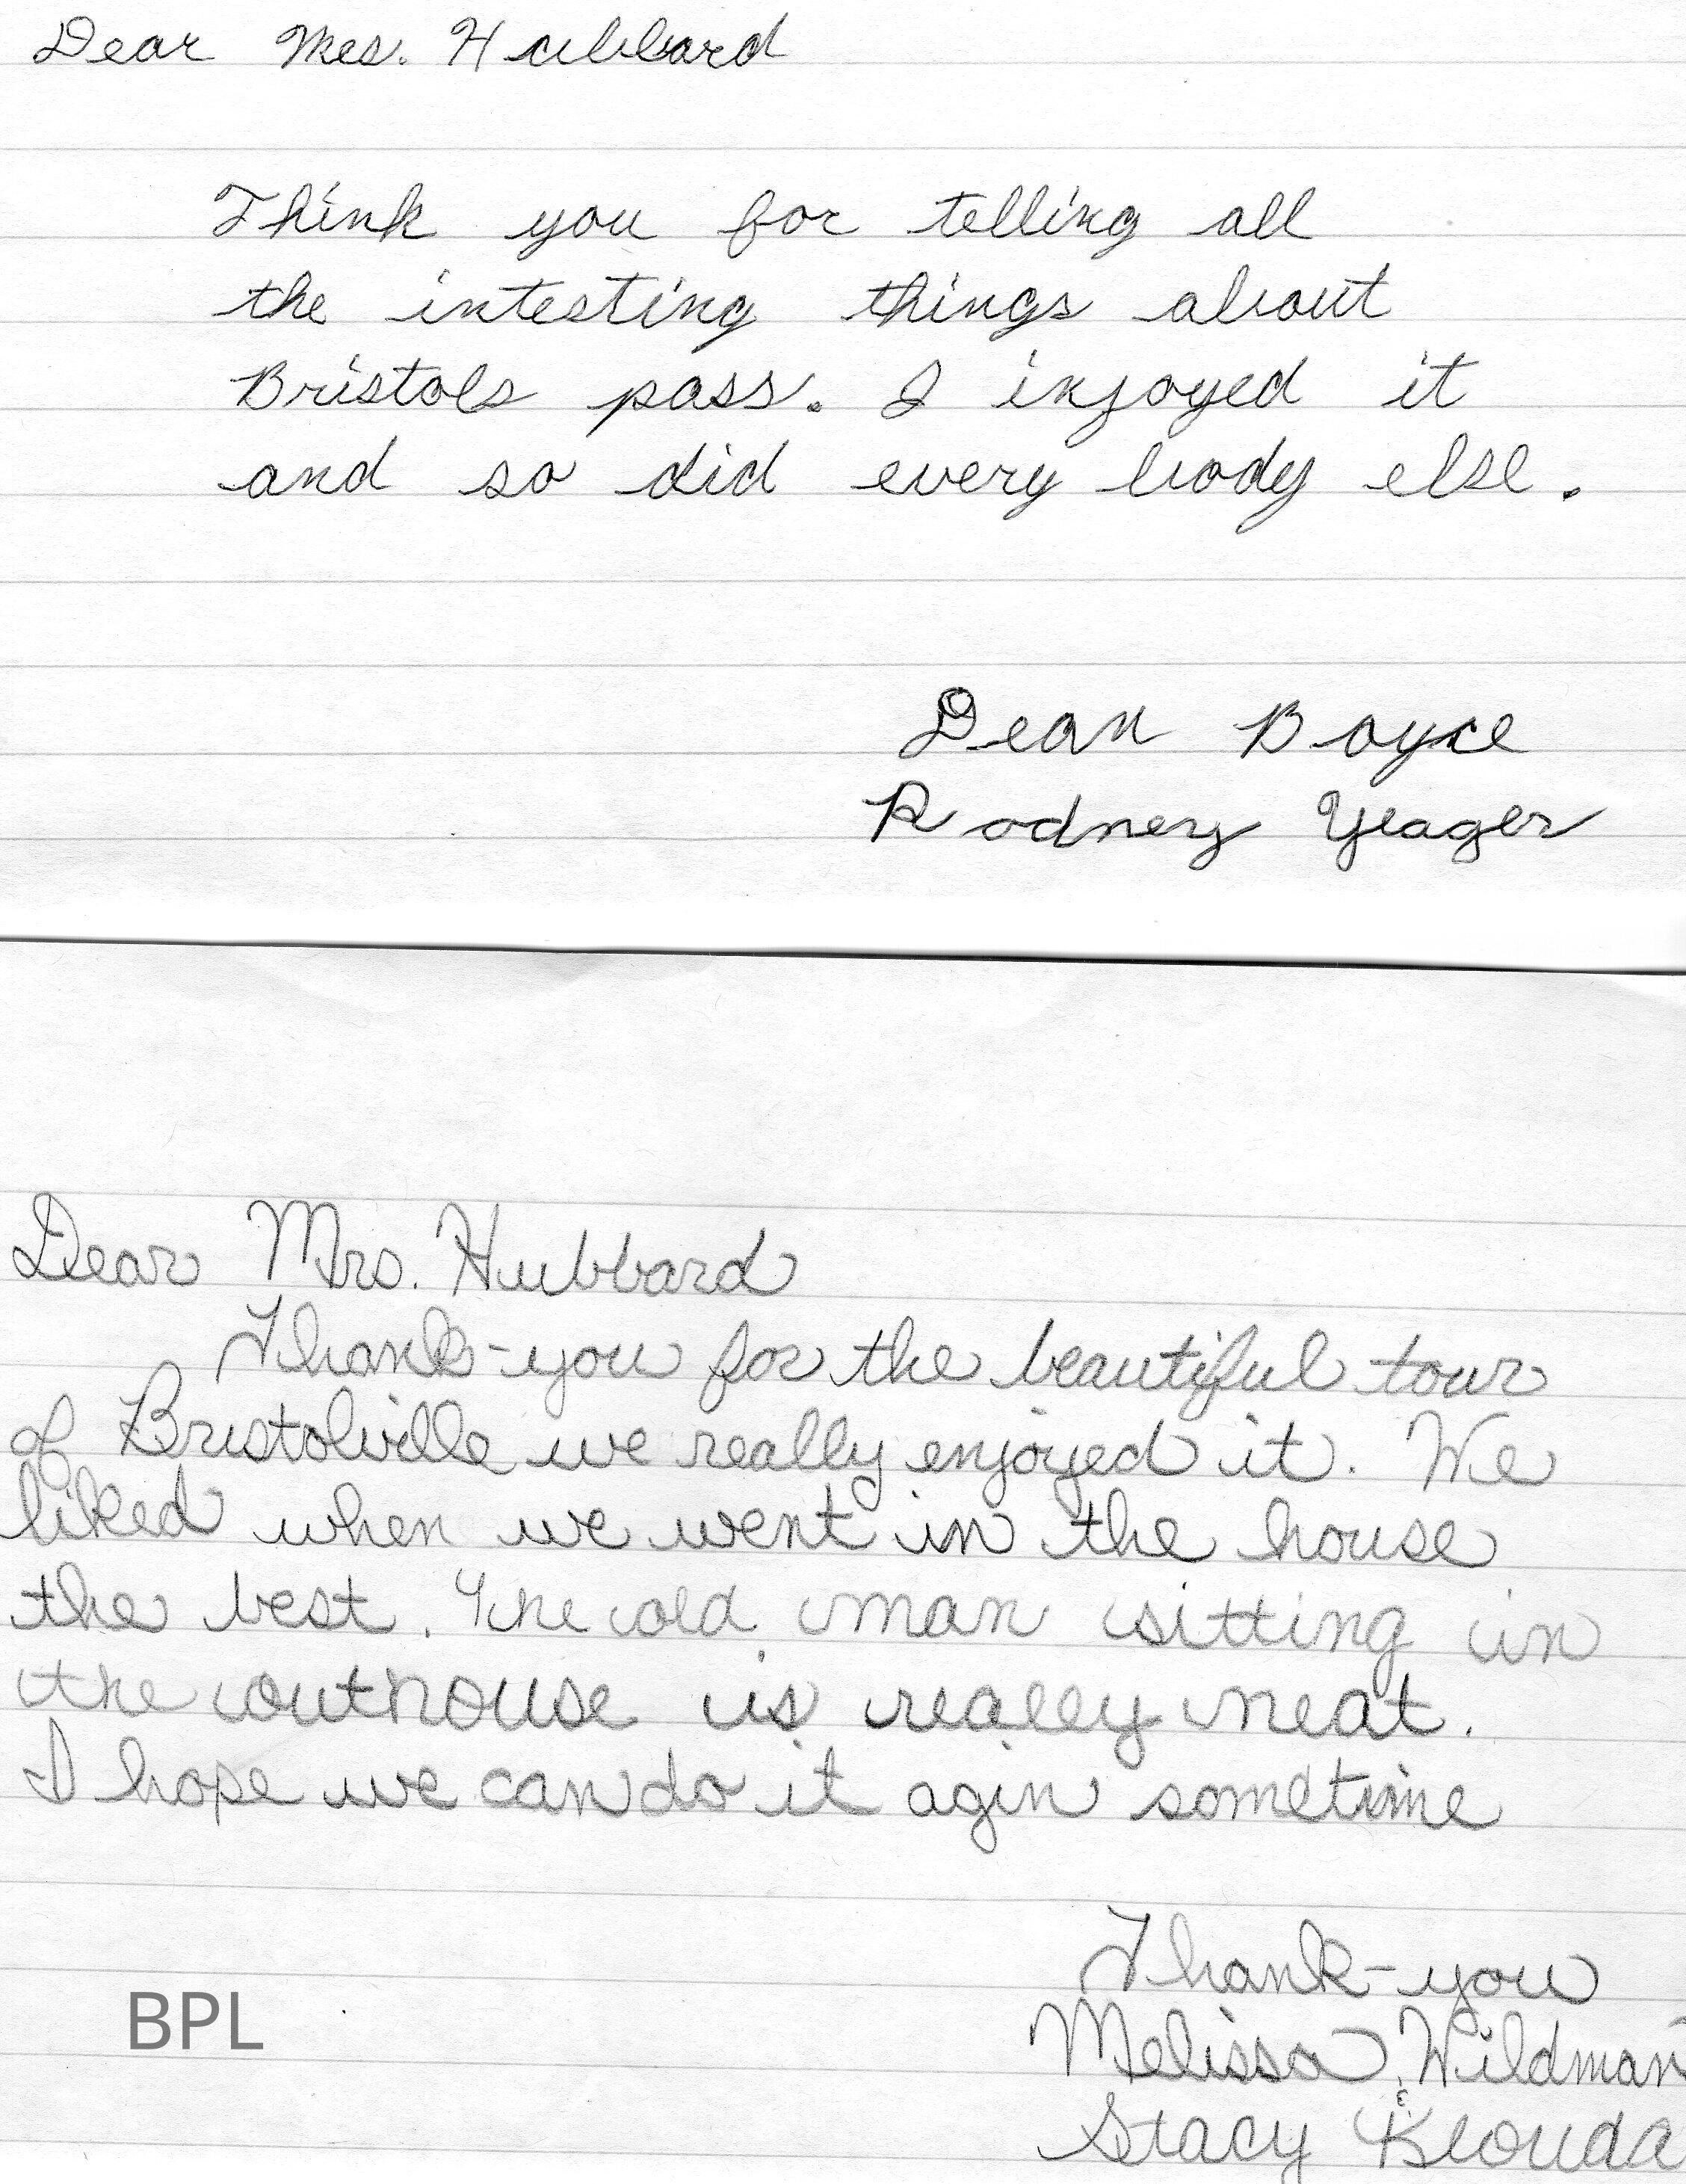 Dear Mrs. Hubbard
Think you for telling all
the intesting things about
Bristols pass. I injoyed it
and so did every body else.
Dean Boyce
Rodney Yeager
Dear Mrs. Hubbard
Thank-you for the beautiful tour
of Bristolville we really enjoyed it. We
liked when we went in the house
the best. The old man sitting in
the outhouse is really neat.
I hope we can do it agin sometime
Thank-you
Melissa Wildman
&
Stacy Klouda
BPL